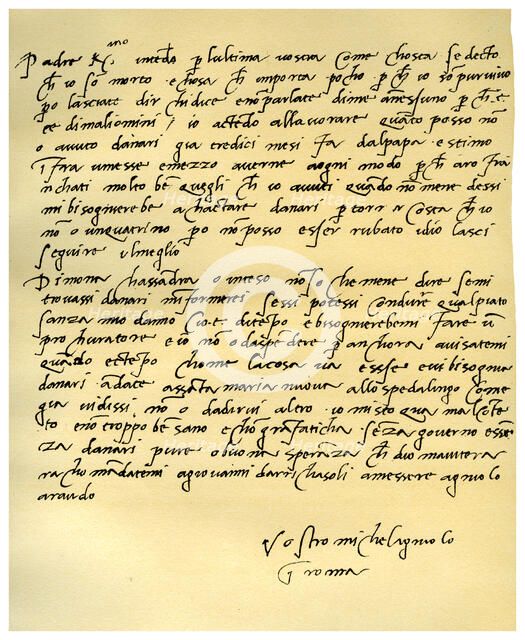 Padre K(mo) intedo p lultima vostra come chosta se decto
ch io so morto e chosa ch importa pocho p ch io so pur vivo
po lasciate dir chi dice e no parlate di me a nessuno p ch e
ce di mali omini io actedo allavorare quato posso no
o avuto danari gia tredici mesi fa dal papa e stimo
i fra u mese e mezo averne a ogni modo p ch aro fra
nchati molto be quegli ch io avuti quando no me ne dessi
mi bisognierebe achactare danari p torn r costa ch io
no o un quatrino po no posso esser rubato idio lasci
seguire il meglio
Di mona chassadra o inteso no so che me ne dire se mi
trovassi danari mi formerei se ssi potessi codure qua l piato
sanza mio danno cioe di tepo e bisognierebemi fare u
prochuratore e io no o da spedere p anchora avisatemi
quado e cte po chome la cosa va e sse e vi bisognia
danari adate a ssata maria nuova allo spedalingo come
gia vi dissi no o da dirvi altro io mi sto qua mal cote
to e no troppo be sano e cho gra faticha seza governo e sse
za danari pure o buona speranza ch dio m aiutera
rachomadatemi a giovanni da rrichasoli a messere agniolo
araudo
Vostro michelagniolo
i roma